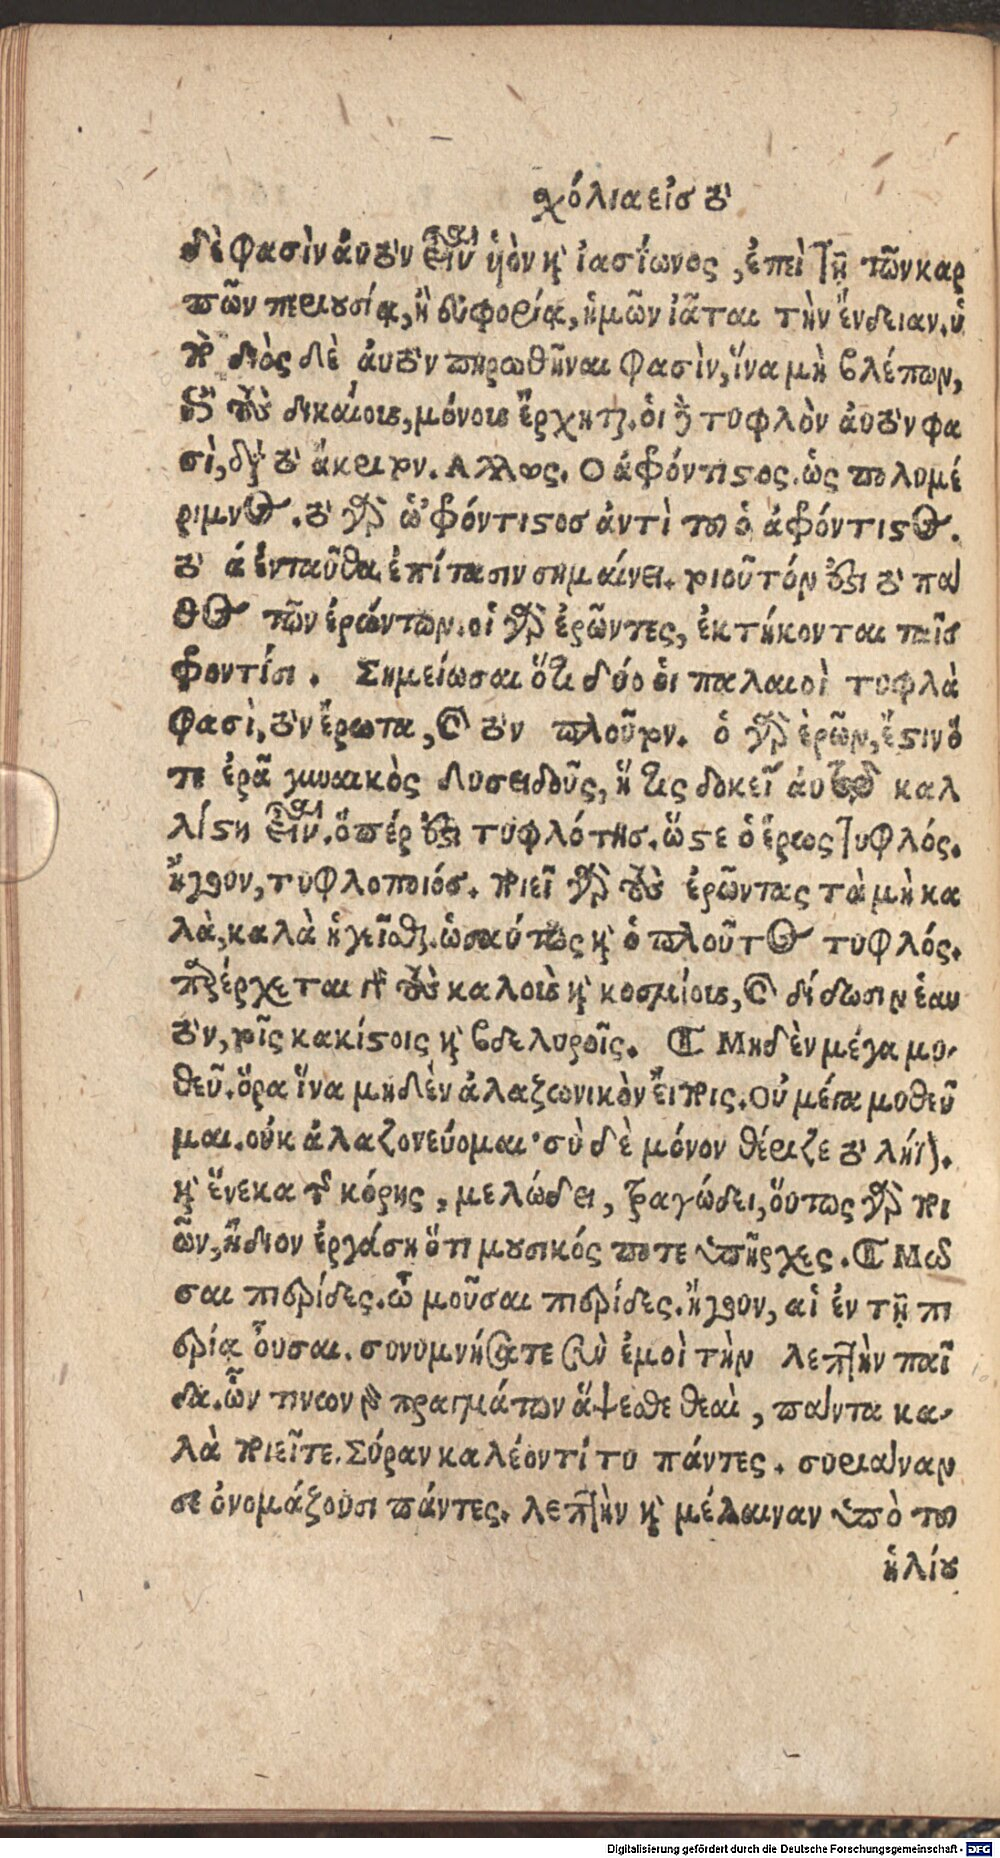 χόλια εἰσ τὸ
δὲ φασὶν ἀυτὸν εἶναι ὑὸν καὶ ἰασίωνος, ἐπεὶ τῇ τῶν καρ
πῶν περιουσίᾳ, ἢ εὐφορίᾳ, ἡμῶν ἰᾶται τὴν ἔνδειαν. ὑ
πὸ διὸς δὲ ἀυτὸν πηρωθῆναι φασὶν, ἵνα μὴ βλέπων,
τοὺς δικαίοις, μόνοις ἔρχηται. ὁι δὲ τυφλὸν ἀυτὸν φα
σὶ, διὰ τὸ ἄκριτον. Αλλως. Ο ἀφρόντιστος. ὡς πολυμέ
ριμνος. τὸ γὰρ ὡ φρόντιστοσ ἀντὶ τοῦ ὁ ἀφρόντιστος.
τὸ ἀ ἐνταῦθα ἐπίτασιν σημαίνει. τοιοῦτόν ἐστι τὸ πά
θος τῶν ἐρώντων. οἱ γὰρ ἐρῶντες, ἐκτήκονται ταῖσ
φροντίσι. Σημείωσαι ὅτι δύο ὁι παλαιοὶ τυφλὰ
φασὶ, τὸν ἔρωτα, καὶ τὸν πλοῦτον. ὁ γὰρ ἐρῶν, ἔστιν ὅ
τε ἐρᾶ γυναικὸς δυσειδοῦς, ἥτις δοκεῖ ἀυτῷ καλ
λίστη εἶναι. ὅπέρ ἐστι τυφλότησ. ὥστε ὁ ἔρως τυφλός.
ἤγουν, τυφλοποιόσ. ποιεῖ γὰρ τοὺς ἐρῶντας τὰ μὴ κα
λὰ, καλὰ ἡγεῖσθαι. ὡσαύτως καὶ ὁ πλοῦτος τυφλός.
παρέρχεται γὰρ τοὺς καλοὺς καὶ κοσμίους, καὶ δίδωσιν ἑαυ
τὸν, τοῖς κακίστοις καὶ βδελυροῖς. Μηδὲν μέγα μυ-
θεῦ. ὅρα ἵνα μηδὲν ἀλαζωνικὸν εἴποις. Οὐ μέγα μυθεῦ
μαι. οὐκ ἀλαζονεύομαι· σὺ δὲ μόνον θέριζε τὸ λήϊον.
καὶ ἕνεκα τῆς κόρης, μελώδει, τραγώδει, ὅυτως γὰρ ποι
ῶν, ἥδιον ἐργάσῃ ὅτι μουσικός ποτε ὑπῆρχες. Μῶ
σαι πιερίδες. ὦ μοῦσαι πιερίδες. ἤγουν, αἱ ἐν τῇ πι
ερίᾳ οὖσαι. συνυμνήσατε σὺν ἐμοὶ τὴν λεπτὴν παῖ
δα. ὧν τινων γὰρ πραγμάτων ἅψεσθε θεαὶ, πάντα κα-
λὰ ποιεῖτε. Σύραν καλέοντί τυ πάντες. συριαίναν
σε ὀνομάζουσι πάντες. λεπτὴν καὶ μέλαιναν ὑπὸ τοῦ
ἡλίου
Digitalisierung gefördert durch die Deutsche Forschungsgemeinschaft - DFG